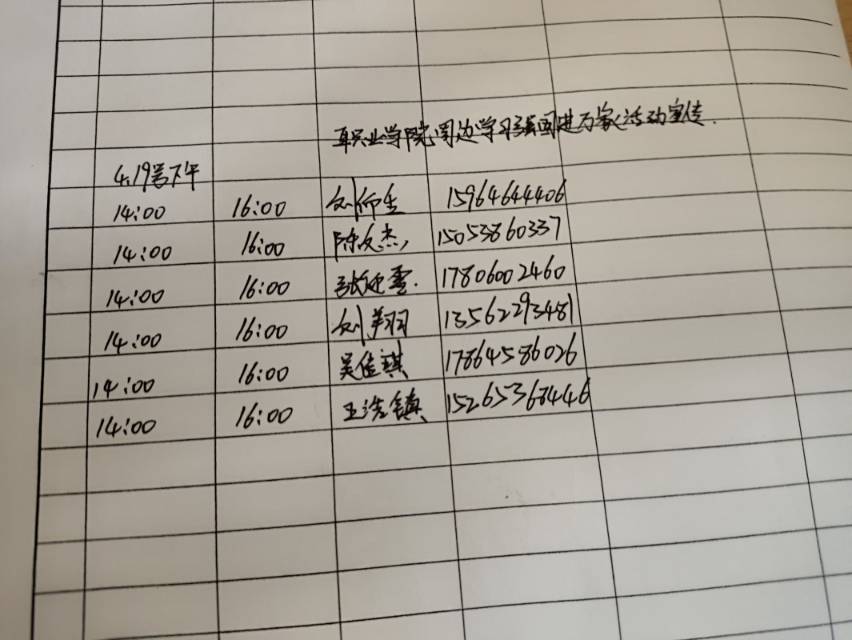 职业学院周边学习强国进万家活动宣传.
4.19号下午
14:00 16:00 刘师生 15964644406
14:00 16:00 陈文杰, 15053860337
14:00 16:00 张 雪. 17806002460
14:00 16:00 刘翔羽 13562293481
14:00 16:00 吴佳祺 17864586026
14:00 16:00 王浩镇 15265368446